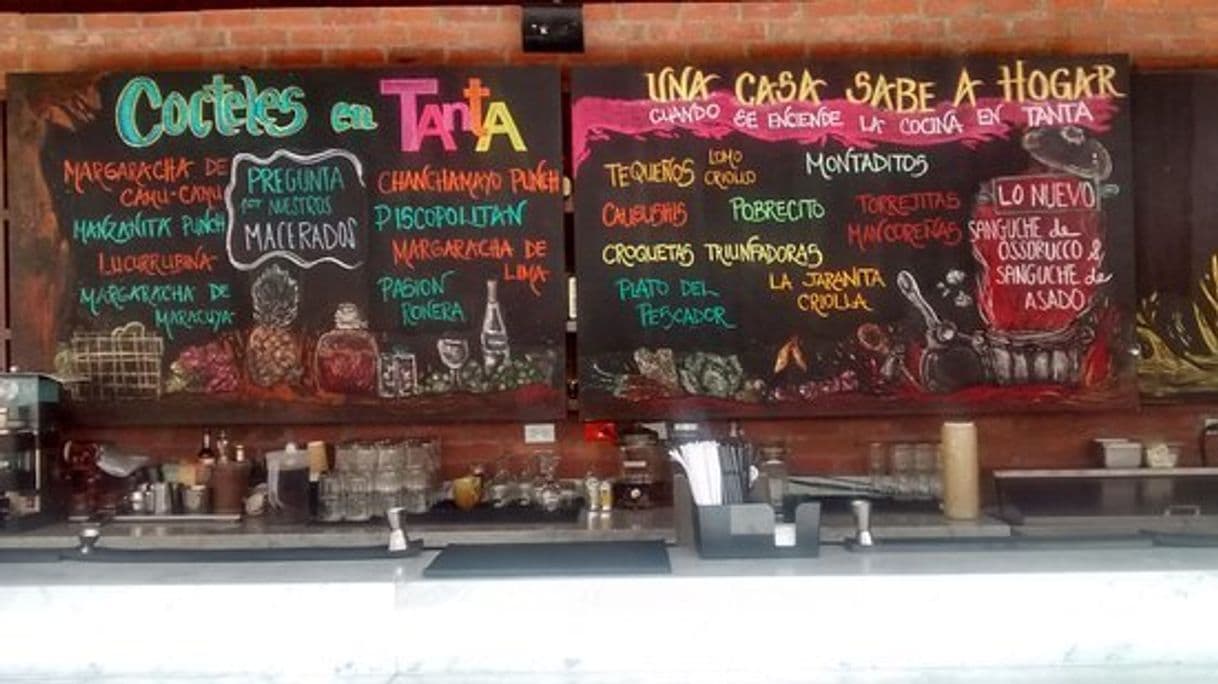 Cocteles en TAntA
MARGARACHA DE
CAMU-CAMU
MANZANITA PUNCH
LUCURRUBINA
MARGARACHA DE
MARACUYA
PREGUNTA
POR NUESTROS
MACERADOS
CHANCHAMAYO PUNCH
PISCOPOLITAN
MARGARACHA DE
LIMA
PASION
RONERA
UNA CASA SABE A HOGAR
CUANDO SE ENCIENDE LA COCINA EN TANTA
TEQUEÑOS
LOMO
CRIOLLO
MONTADITOS
CAUSUSHIS
POBRECITO
TORREJITAS
MANCOREÑAS
CROQUETAS TRIUNFADORAS
PLATO DEL
PESCADOR
LA JARANITA
CRIOLLA
LO NUEVO
SANGUCHE de
OSSOBUCCO &
SANGUCHE de
ASADO